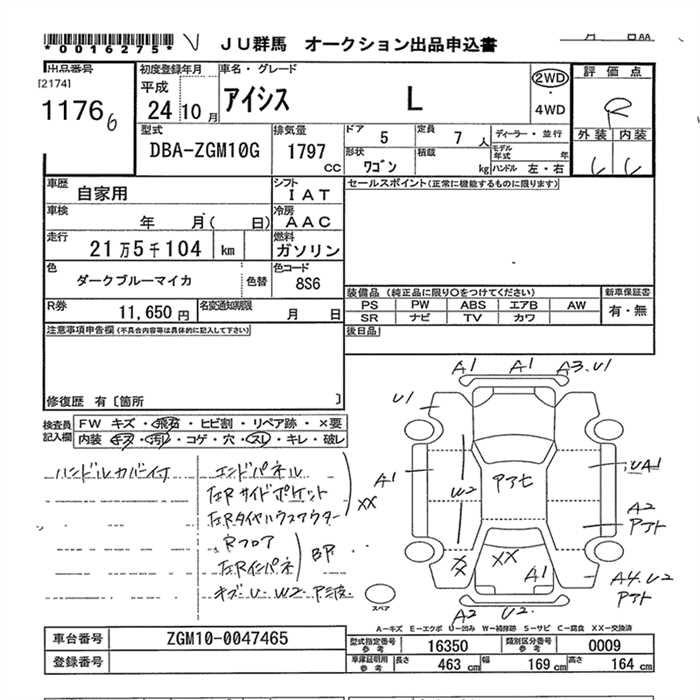 *0016275* ＪＵ群馬 オークション出品申込書
出品番号 初度登録年月 車名・グレード 評価点
[2174] 平成 2WD
1176 6 24 10 月 アイシス L ・ R
4WD 外装 内装
型式 排気量 ドア 5 定員 7 人 ディーラー・並行
DBA-ZGM10G 1797 CC 形状 積載 モデル年式 年
ワゴン kg ハンドル 左・右
車歴 自家用 シフト IAT セールスポイント(正常に機能するものに限ります)
車検 年 月( 日) 冷房 AAC
走行 21万5千104 km 燃料 ガソリン
色 ダークブルーマイカ 色替 色コード 8S6
装備品 (純正品に限り○をつけてください) 新車保証書
R券 11,650 円 名変通知期限 月 日 PS PW ABS エアB AW 有・無
SR ナビ TV カワ
注意事項申告欄 (不具合内容等は具体的に記入して下さい) 後日品
修復歴 有〔箇所 〕
検査員記入欄 FW キズ・飛石・ヒビ割・リペア跡・×要
内装 キズ・汚れ・コゲ・穴・スレ・キレ・破レ
ハンドルカバー付 エンドパネル
左右サイドポケット XX
左右タイヤハウスアウター
Rフロア
左右インパネ BP
A1 A1 A3.U1
U1
A1 W2 アアセ UA1
A2
アアト
XX XX A1 A4.U2
アアト
A2 U2
スペア
A－キズ E－エクボ U－凹み W－補修跡 S－サビ C－腐食 XX－交換済
車台番号 ZGM10-0047465 型式指定番号 参考 16350 類別区分番号 参考 0009
登録番号 車庫証明用 参考 長さ 463 cm 幅 169 cm 高さ 164 cm